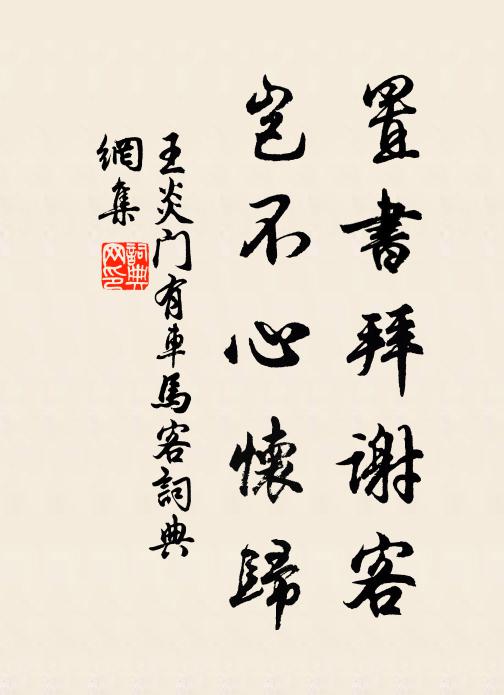 置書拜謝客
豈不心懷歸
王炎門有車馬客詞典
網集
詞典
网印